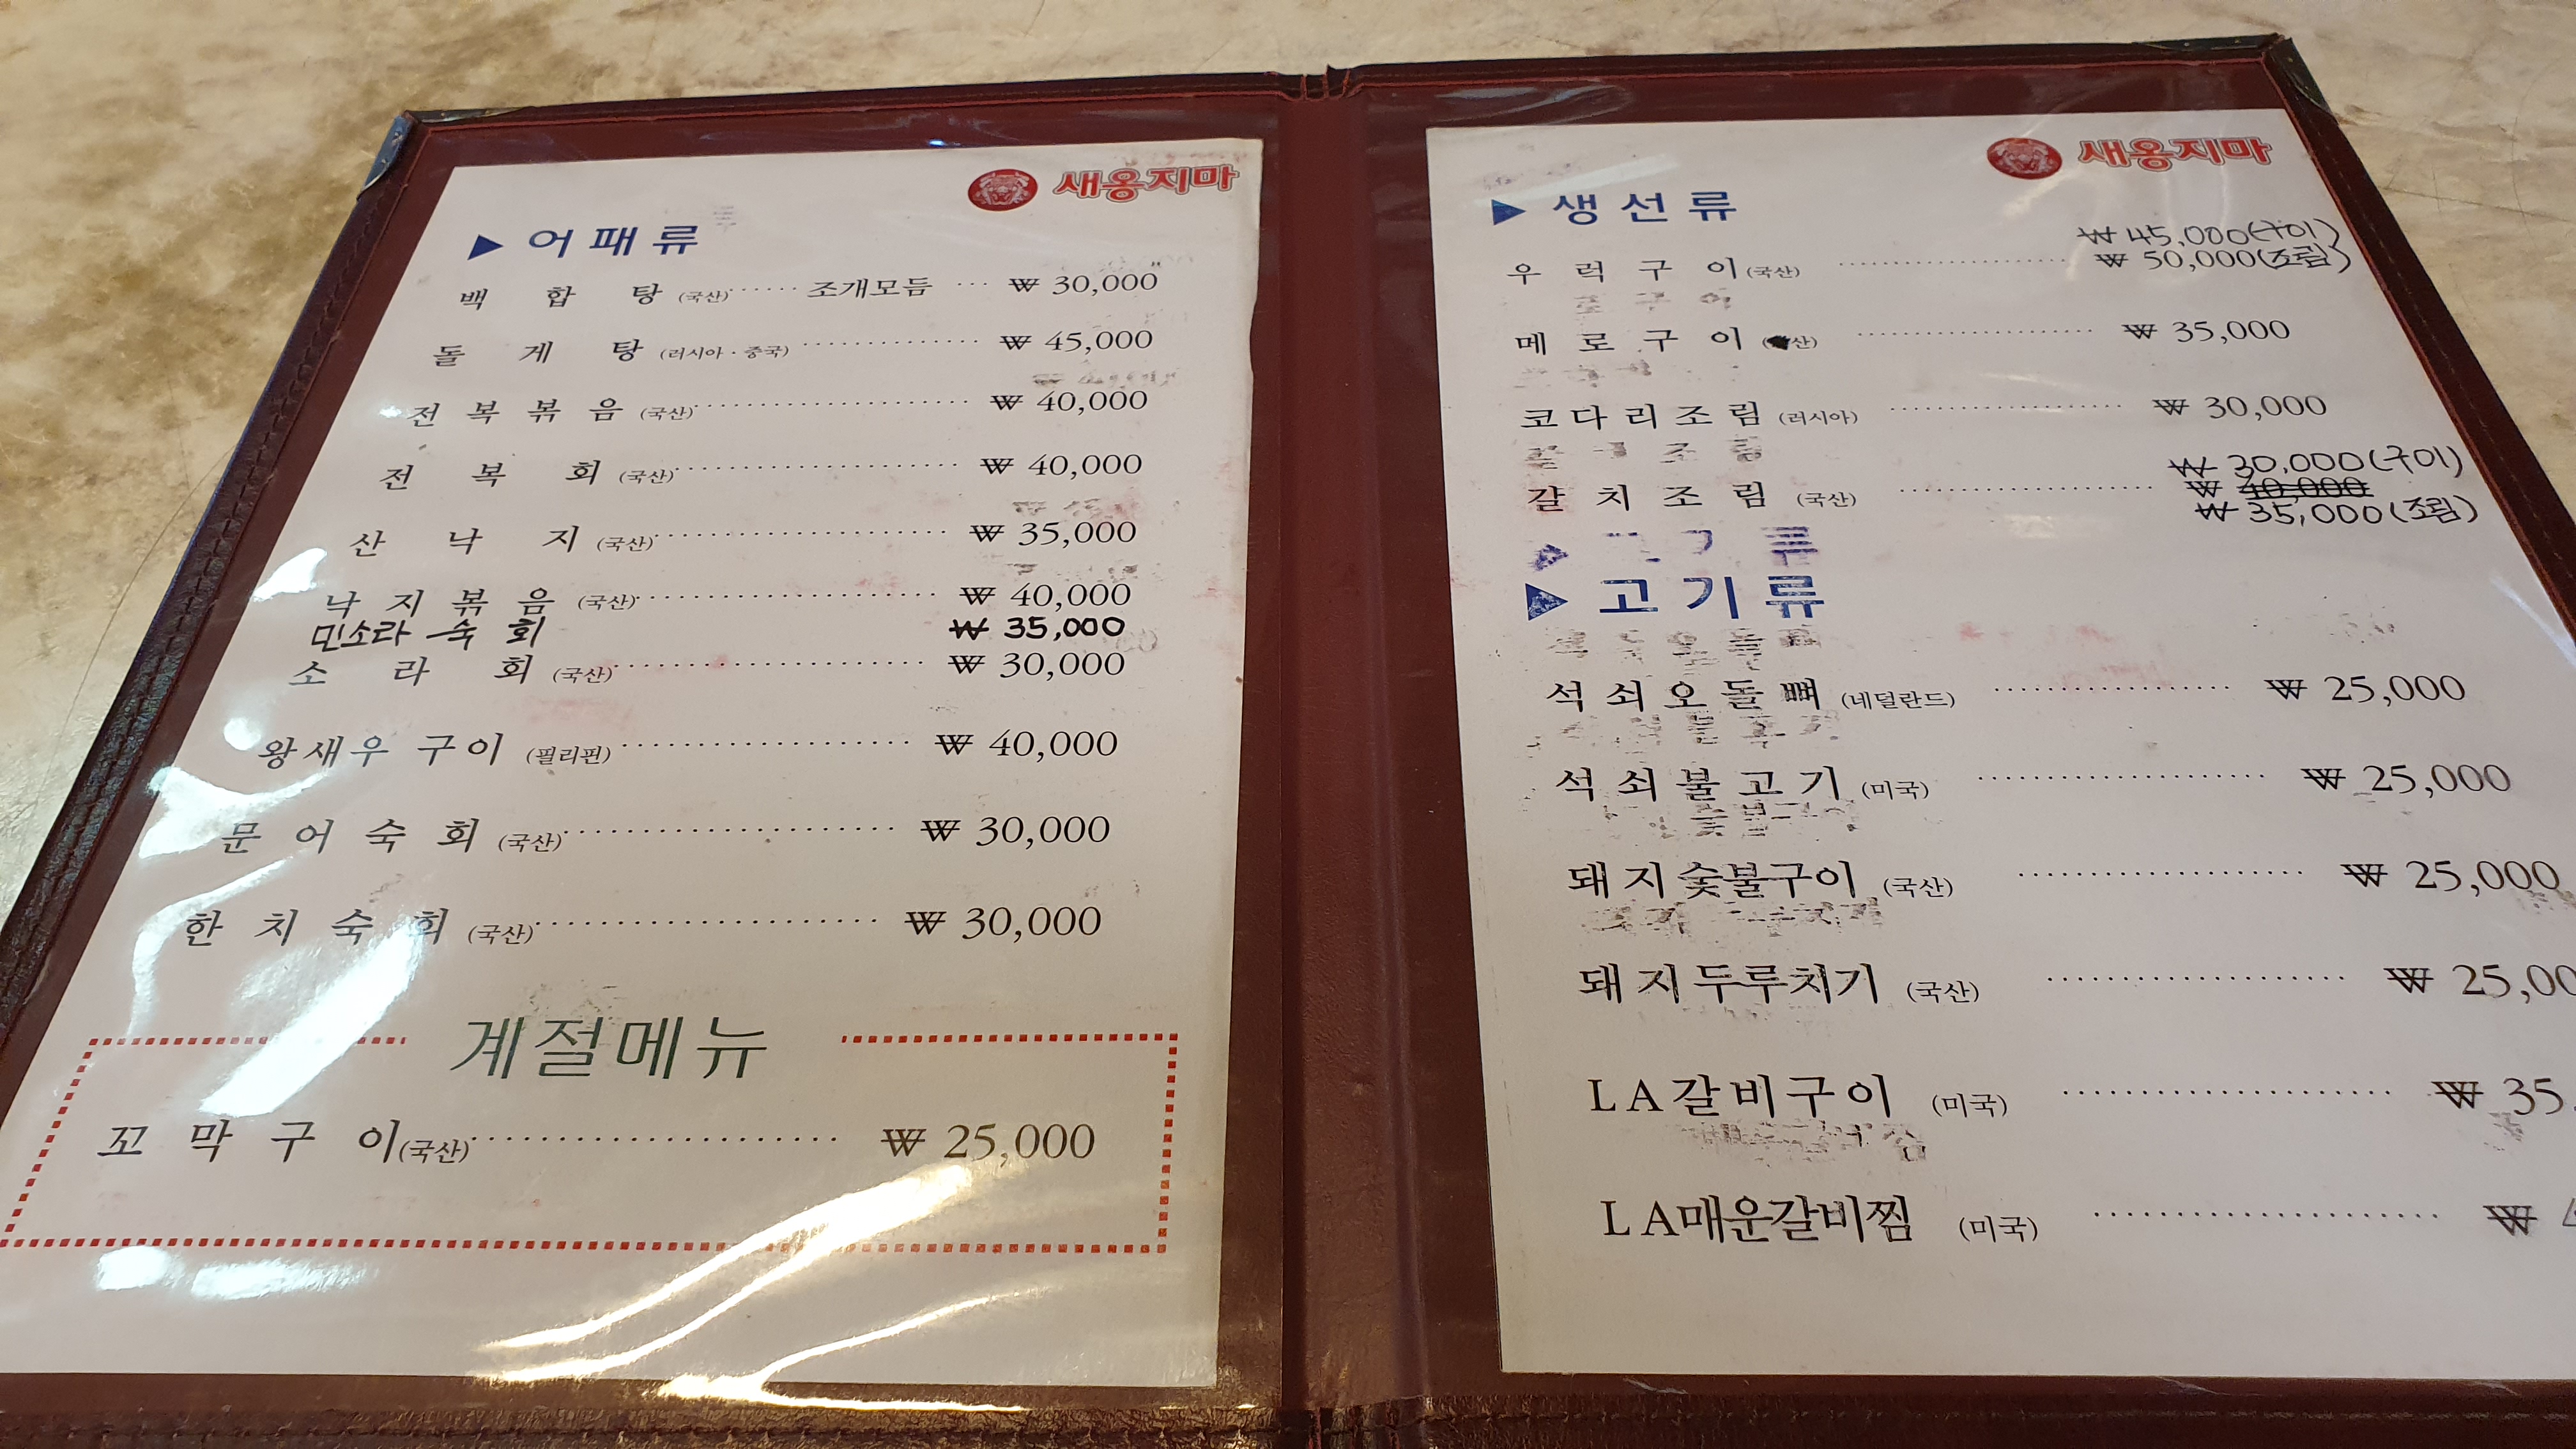 새옹지마
▶ 어패류
백합탕 (국산) 조개모듬 ₩ 30,000"
돌게탕 (러시아·중국) ₩ 45,000
전복볶음 (국산) ₩ 40,000
전복회 (국산) ₩ 40,000
산낙지 (국산) ₩ 35,000
낙지볶음 (국산) ₩ 40,000
민소라 숙회 ₩ 35,000
소라회 (국산) ₩ 30,000
왕새우 구이 (필리핀) ₩ 40,000
문어숙회 (국산) ₩ 30,000
한치숙회 (국산) ₩ 30,000
계절메뉴
꼬막구이 (국산) ₩ 25,000
새옹지마
▶ 생선류
₩ 45,000(구이)
우럭구이 (국산) ₩ 50,000(조림)
메로구이 ( 산) ₩ 35,000
코다리조림 (러시아) ₩ 30,000
₩ 30,000(구이)
갈치조림 (국산) ₩ 40,000
₩ 35,000(조림)
▶ 고기류
석쇠오돌뼈 (네덜란드) ₩ 25,000
석쇠불고기 (미국) ₩ 25,000
돼지숯불구이 (국산) ₩ 25,000
돼지두루치기 (국산) ₩ 25,00
LA갈비구이 (미국) ₩ 35,
LA매운갈비찜 (미국) ₩